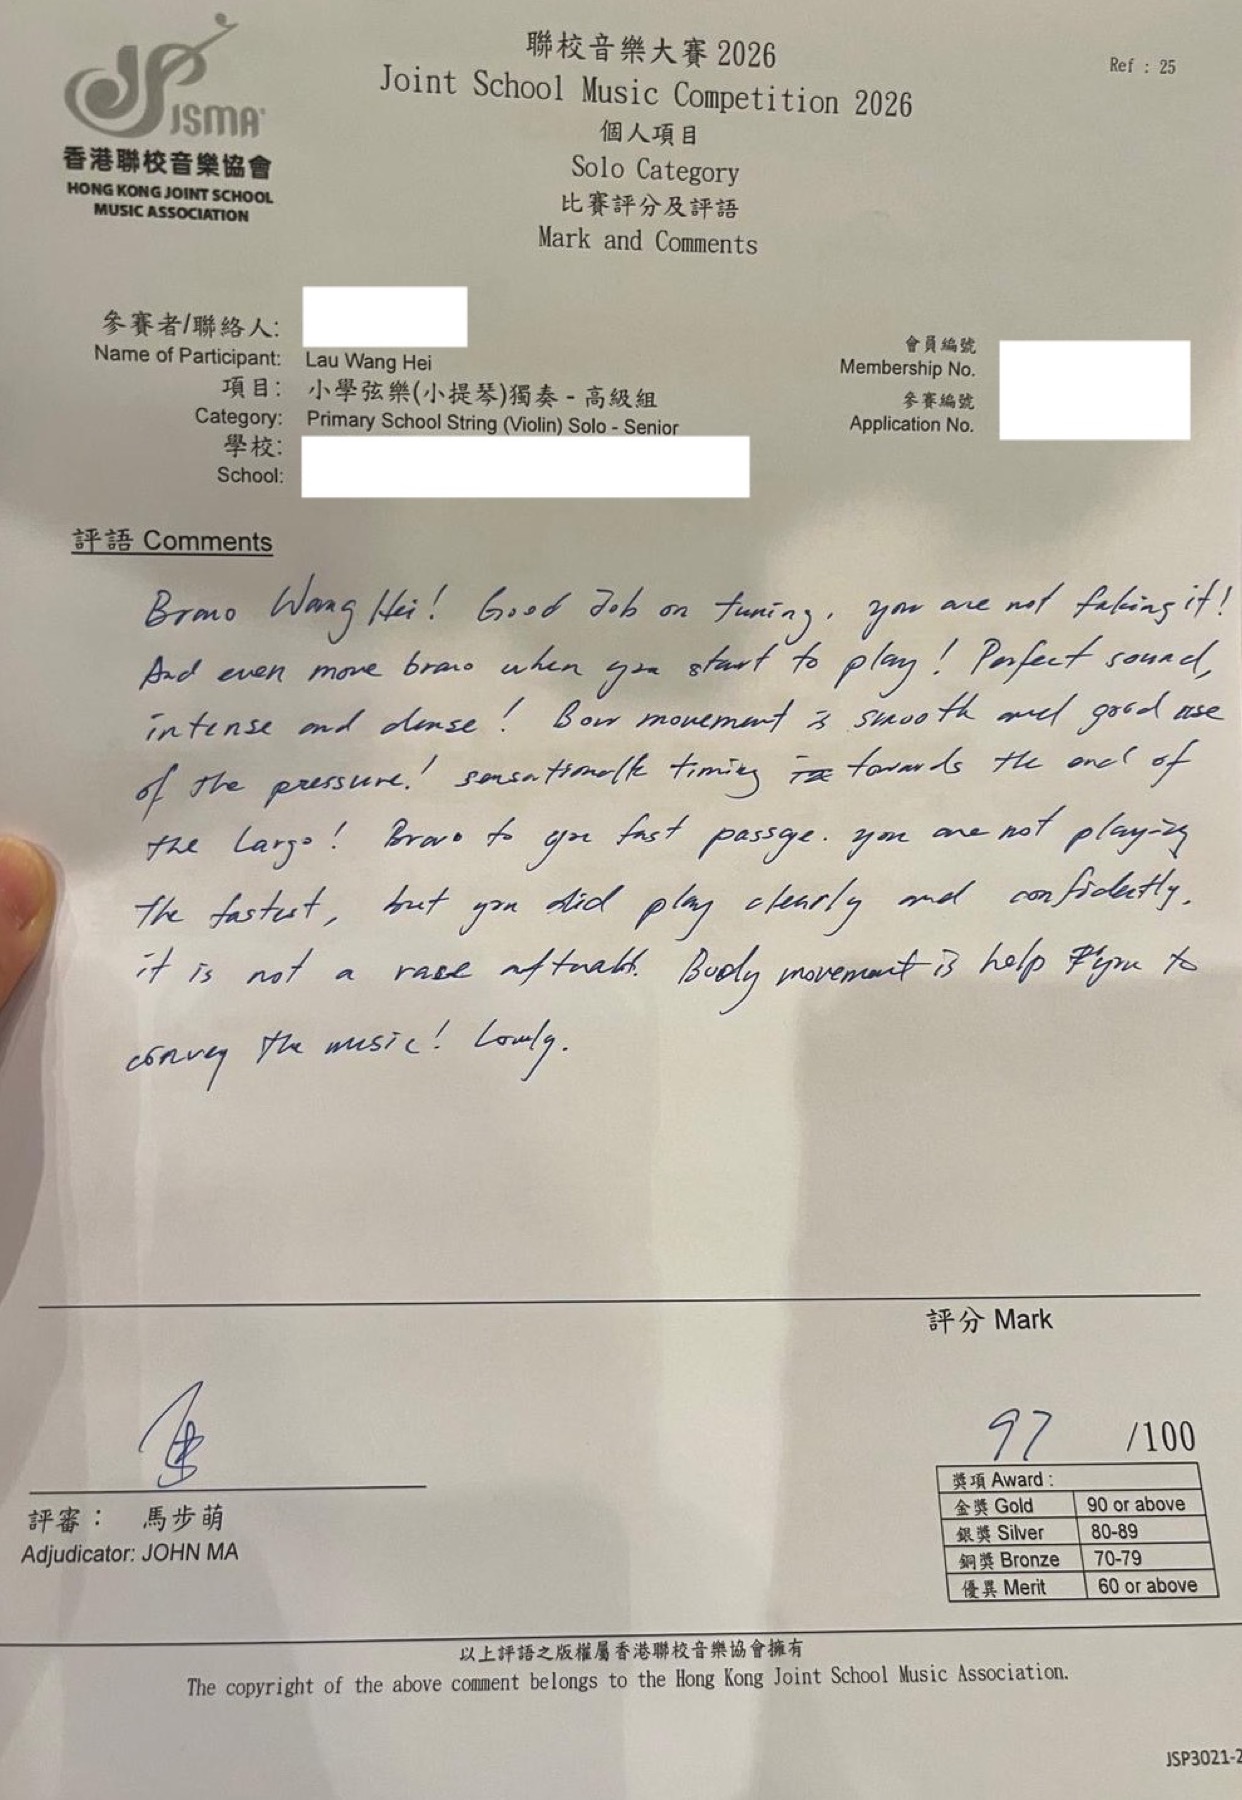 JSMA
香港聯校音樂協會
HONG KONG JOINT SCHOOL
MUSIC ASSOCIATION
聯校音樂大賽 2026
Joint School Music Competition 2026
個人項目
Solo Category
比賽評分及評語
Mark and Comments
Ref : 25
參賽者/聯絡人:
Name of Participant: Lau Wang Hei
項目: 小學弦樂(小提琴)獨奏 - 高級組
Category: Primary School String (Violin) Solo - Senior
學校:
School:
會員編號
Membership No.
參賽編號
Application No.
評語 Comments
Bravo Wang Hei! Good Job on tuning, you are not faking it!
And even more bravo when you start to play! Perfect sound,
intense and dense! Bow movement is smooth and good use
of the pressure! timing towards the end of
the Largo! Bravo to you fast passge. you are not playing
the fastest, but you did play clearly and confidently.
it is not a race Body movement is help you to
convey the music! Lovely.
評分 Mark
97 /100
獎項 Award :
金獎 Gold 90 or above
銀獎 Silver 80-89
銅獎 Bronze 70-79
優異 Merit 60 or above
評審： 馬步萌
Adjudicator: JOHN MA
以上評語之版權屬香港聯校音樂協會擁有
The copyright of the above comment belongs to the Hong Kong Joint School Music Association.
JSP3021-2